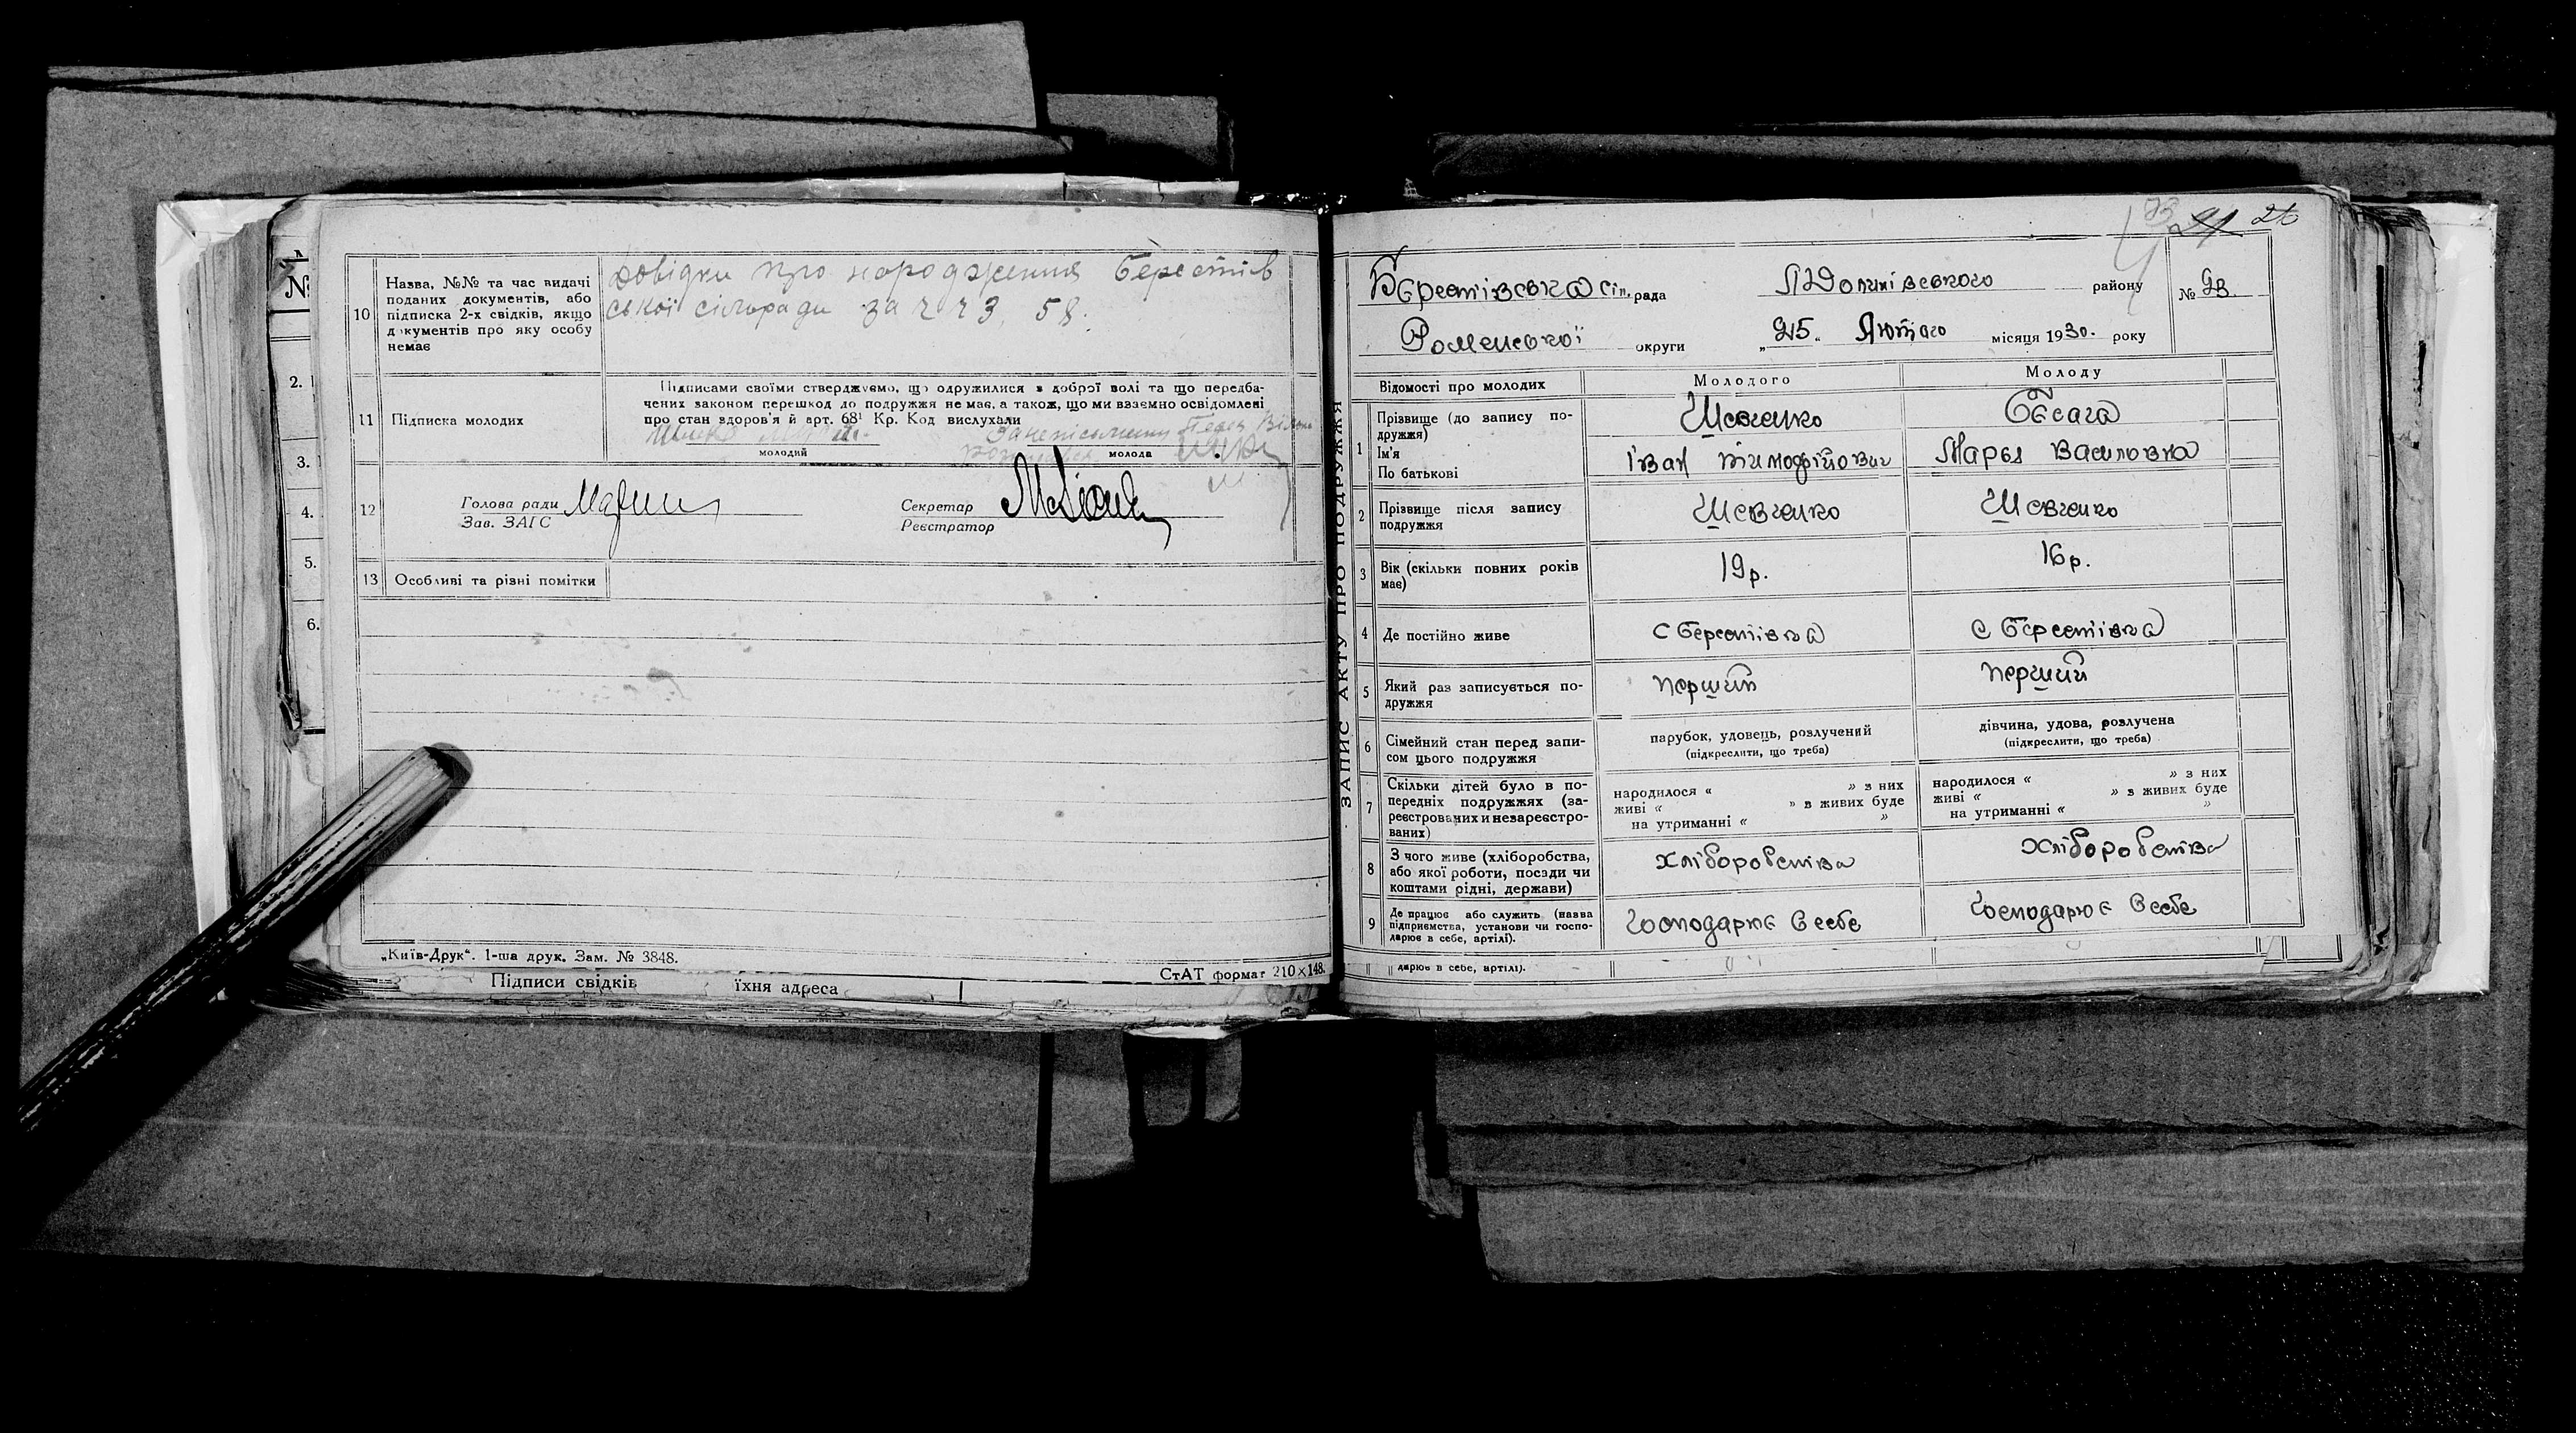 №
2.
3.
4.
5.
6.
10 Назва, №№ та час видачі поданих документів, або підписка 2-х свідків, якщо документів про яку особу немає
Довідки про народження Берестів
ської сільради за ч ч 3, 58.
11 Підписка молодих
Підписами своїми стверджуємо, що одружилися з доброї волі та що передба-
чених законом перешкод до подружжя не має, а також, що ми взаємно освідомлені
про стан здоров'я й арт. 68¹ Кр. Код вислухали
молодий молода
12 Голова ради
Зав. ЗАГС
Секретар
Реєстратор
13 Особливі та різні помітки
„Київ-Друк“. 1-ша друк. Зам. № 3848.
СтАТ формат 210×148.
Підписи свідків їхня адреса
ЗАПИС АКТУ ПРО ПОДРУЖЖЯ
26
Берестівська сіл. рада району № 23
Роменської округи „25“ Лютого місяця 1930. року
Відомості про молодих Молодого Молоду
1 Прізвище (до запису по-
дружжя)
Ім'я
По батькові
Шевченко
Іван Тимофійович
Марья Василовна
2 Прізвище після запису
подружжя
Шевченко Шевченко
3 Вік (скільки повних років
має)
19р. 16р.
4 Де постійно живе с Берестівка с Берестівка
5 Який раз записується по-
дружжя
перший перший
6 Сімейний стан перед запи-
сом цього подружжя
парубок, удовець, розлучений
(підкреслити, що треба)
дівчина, удова, розлучена
(підкреслити, що треба)
7 Скільки дітей було в по-
передніх подружжях (за-
реєстрованих и незареєстро-
ваних)
народилося « » з них
живі « » з живих буде
на утриманні « »
народилося « » з них
живі « » з живих буде
на утриманні « »
8 З чого живе (хліборобства,
або якої роботи, посади чи
коштами рідні, держави)
хліборобства хліборобства
9 Де працює або служить (назва
підприємства, установи чи госпо-
дарює в себе, артілі).
Господарює в себе Господарює в себе
дарює в себе, артілі).